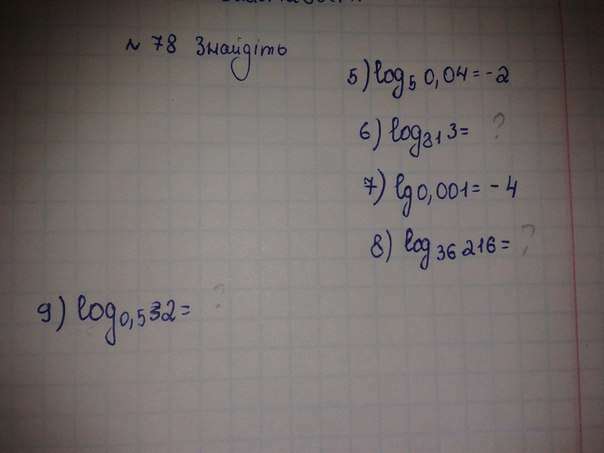 № 78 Знайдіть
5) log₅ 0,04 = -2
6) log₈₁ 3 = ?
7) lg 0,001 = -4
8) log₃₆ 216 = ?
9) log₀,₅32 = ?